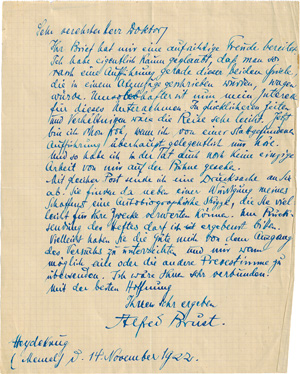 Sehr verehrter Herr Doktor,
Ihr Brief hat mir eine aufrichtige Freude bereitet.
Ich habe eigentlich kaum geglaubt, daß man so
rasch eine Aufführung gerade dieser beiden Spiele
die in einem Atemzuge geschrieben wurden, wagen
würde. mein Interesse
für dieses Unternehmen. In glücklicheren Zeiten
und Verhältnissen wäre die Reise sehr leicht. Jetzt
bin ich schon froh, wenn ich von einer stattgefundenen
Aufführung überhaupt gelegentlich was höre.
Und so habe ich in der Tat auch noch keine einzige
Arbeit von mir auf der Bühne gesehn.
Mit gleicher Post sende ich eine Drucksache an Sie
ab. Sie finden da neben einer Würdigung meines
Schaffens eine autobiographische Skizze, die Sie viel
leicht für Ihre Zwecke verwerten können. Um Rück
sendung des Heftes darf ich ergebenst bitten.
Vielleicht haben Sie die Güte mich von dem Ausgang
des Versuchs zu unterrichten und mir wenn
möglich eine oder die andre Pressestimme zu
übersenden. Ich wäre Ihnen sehr verbunden.
Mit der besten Hoffnung
Ihnen sehr ergeben
Alfred Brust.
Heydekrug
(Memel) d. 14. November 1922.